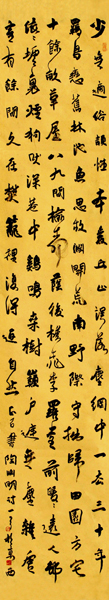 少無適俗韻性本愛丘山誤落塵網中一去三十年
羈鳥戀舊林池魚思故淵開荒南野際守拙歸園田方宅
十餘畝草屋八九間榆柳蔭後檐桃李羅堂前曖曖遠人邨
依依墟里煙狗吠深巷中雞鳴桑樹顛戶庭無塵雜虛
室有餘閒久在樊籠裏復得返自然 書陶淵明詩一首